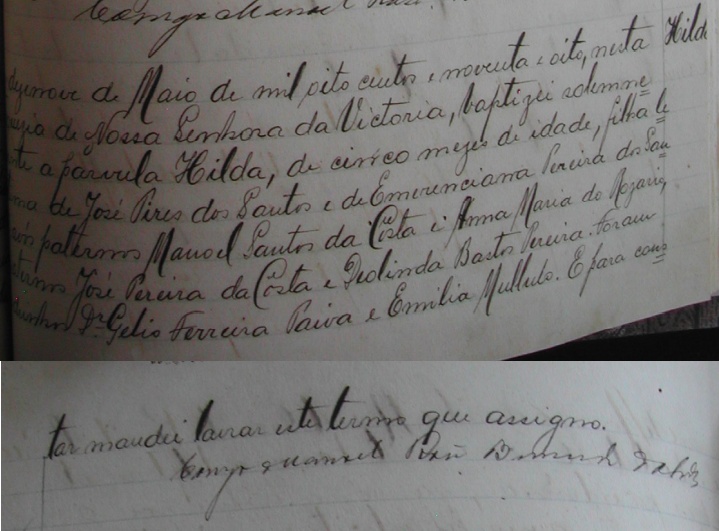 Conego Manoel
dezenove de Maio de mil oito centos e noventa e oito, nesta Hilda
de Nossa Senhora da Victoria, baptizei solemne=
te a párvula Hilda, de cinco mezes de idade, filha le=
de José Pires dos Santos e de Emerenciana Pereira dos San=
paternos Manoel Santos da Costa e Anna Maria do Rozario,
ternos José Pereira da Costa e Deolinda Bastos Pereira. Foram
Dr. Gelio Ferreira Paiva e Emilia Mullulo. E para cons=
tar mandei lavrar este termo que assigno.
Conego Manoel